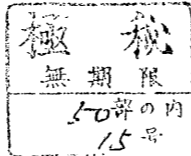 極秘
無期限
50部の内
15号